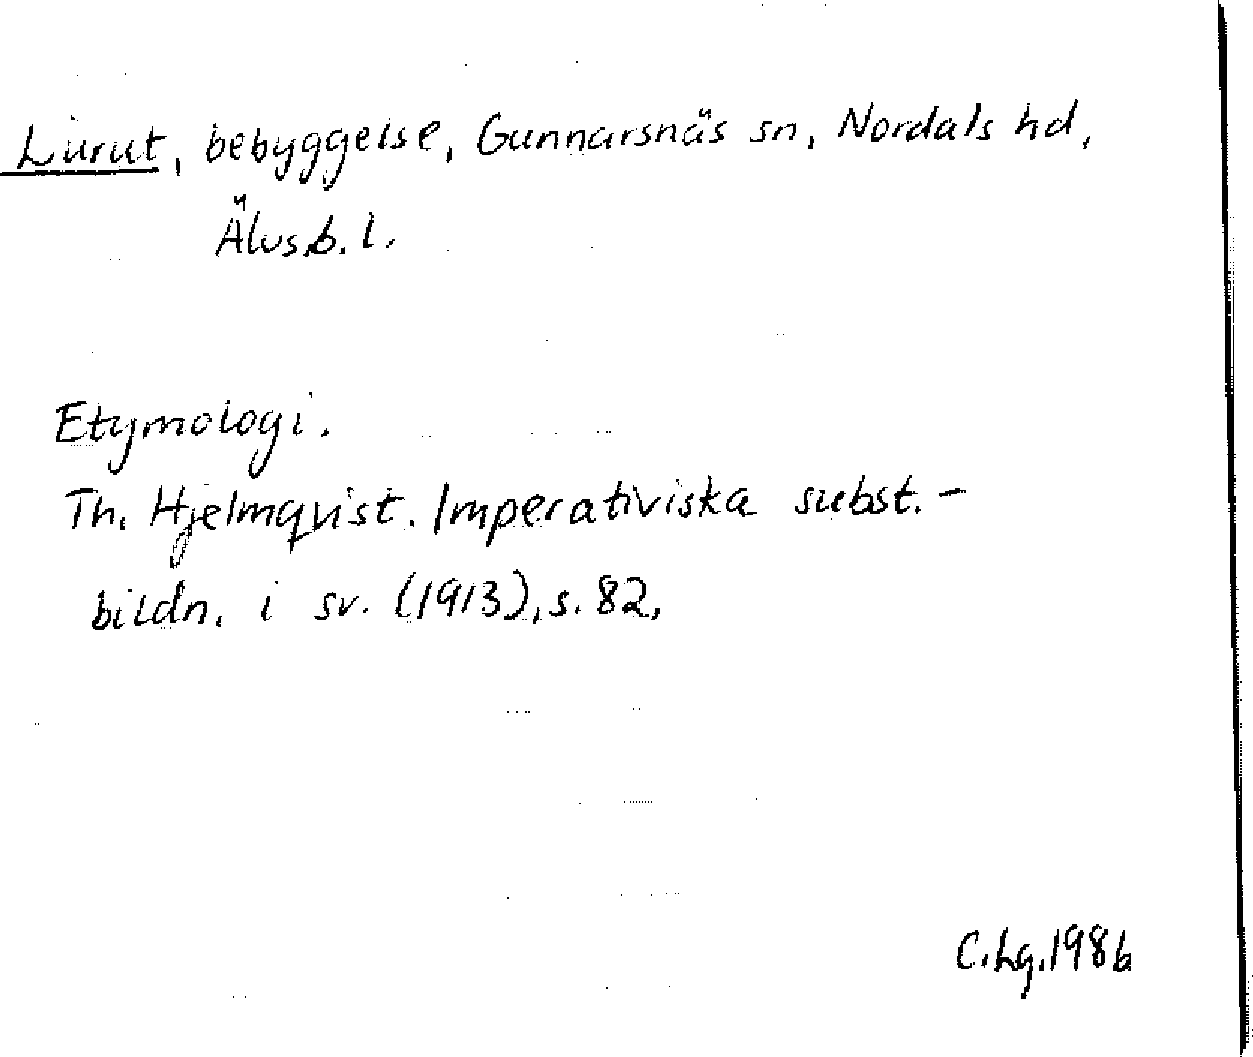 Lurut, bebyggelse, Gunnarsnäs sn, Nordals hd,
Älvsb. l.
Etymologi.
Th. Hjelmqvist. Imperativiska subst.-
bildn. i sv. (1913), s. 82,
C.Lg.1986